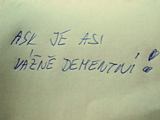 ASK JE ASI
VÁŽNĚ DEMENTNÍ!